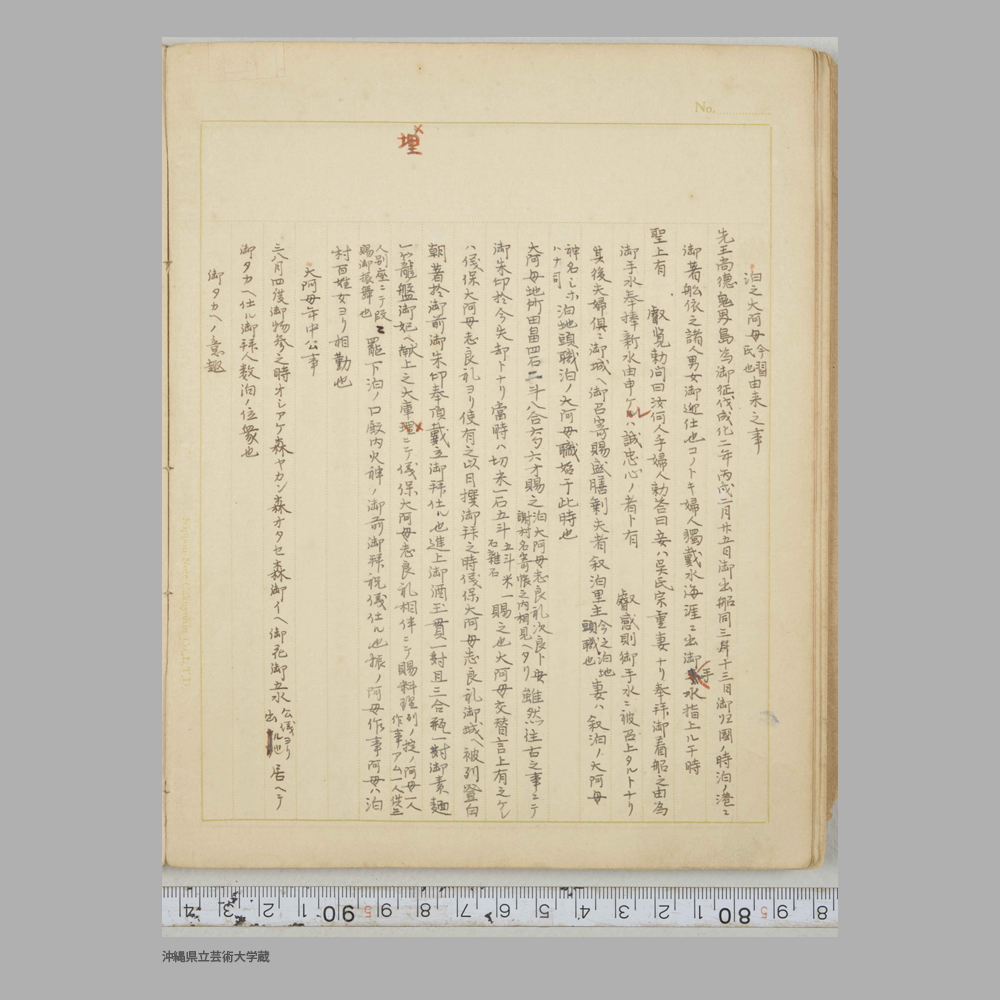 No.
埋
泊之大阿母今習氏也由来之事
先王高德鬼界島為御征伐成化二年丙戌二月廿五日御出船同三年十三日御归国ノ時泊ノ港ニ
御著船依之諸人男女御迎仕也コノトキ婦人獨戴水海涯ニ出御手水指上ル于時
聖上有 叡覧勅問曰汝何人乎婦人勅答曰妾ハ呉氏宗重妻ナリ奉拝御着船之由為
御手水奉捧新水由申ケルハ誠忠心ノ者ト有 叡感則御手水ニ被召上タルトナリ
其後夫婦俱ニ御城ヘ御召寄賜盛膳剰夫者叙泊里主今之泊地頭職也妻ハ叙泊ノ大阿母
神名シホハナ司泊地頭職泊ノ大阿母職始于此時也
大阿母地所田畠四石二斗八合六夕六才賜之泊大阿母志良礼次良ト母謝村名寄帳之内相見ヘタリ雖然往古之事ニテ
御朱印於今失却トナリ當時ハ切米一石五斗五斗米一石雜石賜之也大阿母交替言上有之ケレ
ハ儀保大阿母志良礼ヨリ使有之以日撰御拝之時儀保大阿母志良礼御城ヘ被列登白
朝著於御前御朱印奉頂戴立御拝仕ル也進上御酒玉貫一對且三合瓶一對御素麺
一 龍盤御妃ヘ献上之大庫理ニテ儀保大阿母志良礼相伴ニテ賜料理列ノ掟ノ阿母一人作事アム一人供三
人別座ニテ賜御振舞也 罷下泊ノ口殿内火神ノ御前御拝祝儀仕ル也掟ノ阿母作事阿母ハ泊
村百姓女ヨリ相勤也
大阿母年中公事
三八月四度御物参之時オシアケ森ヤカン森オタセ森御イヘ御花御五水公儀ヨリ出ル也居ヘテ
御タカヘ仕ル御拝人数泊ノ位衆也
御タカヘノ意趣
沖縄県立芸術大学蔵